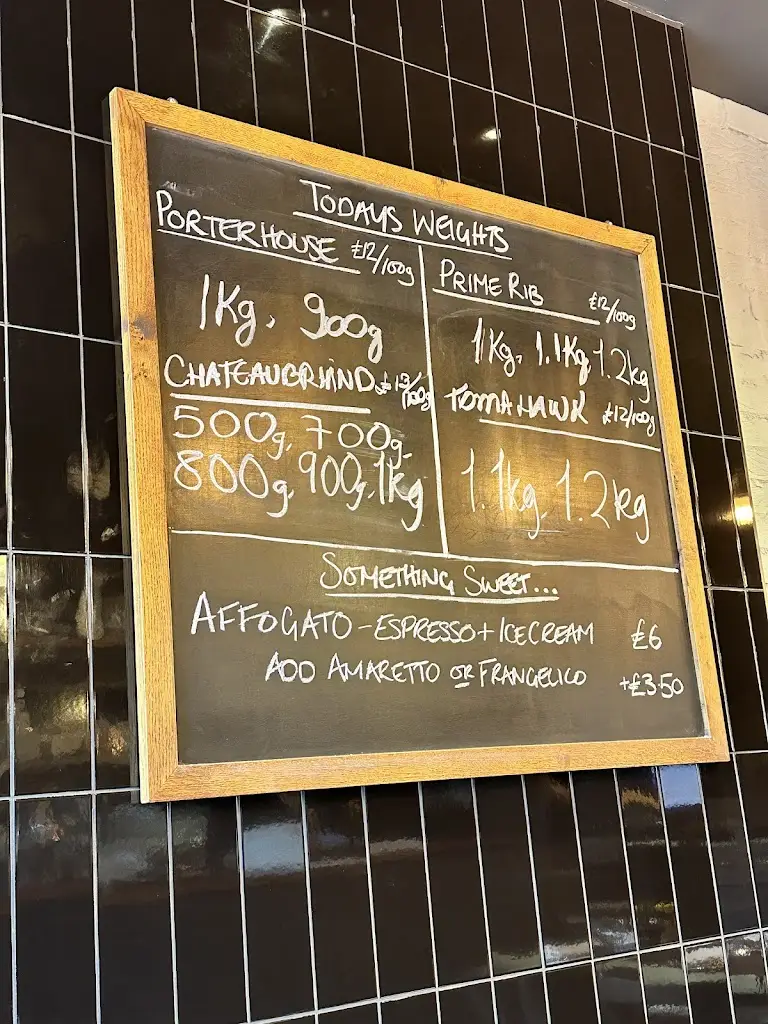 TODAYS WEIGHTS
PORTERHOUSE £12/100g
1Kg, 900g
CHATEAUBRIAND £13/100g
500g, 700g,
800g, 900g, 1kg
PRIME RIB £12/100g
1Kg, 1.1Kg 1.2kg
TOMAHAWK £12/100g
1.1kg, 1.2kg
SOMETHING SWEET...
AFFOGATO - ESPRESSO + ICE CREAM £6
ADD AMARETTO OR FRANGELICO +£3.50